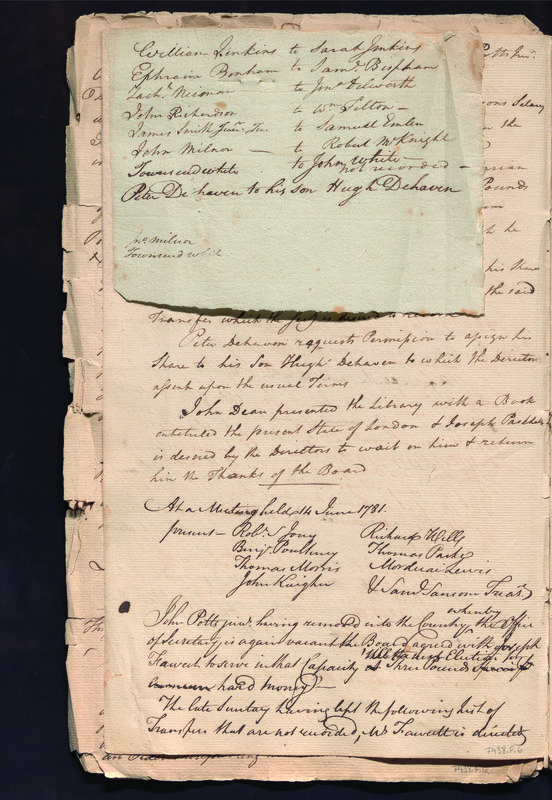 William Jinkins to Sarah Jinkins
Ephraim Bonham to Sam.l Bispham
Zach.y to Jon.n Dilworth
John Richardson to W.m Tilton —
James Smith Jun.r to Samuel Emlen
John Milnor — to Robert McKnight
Townsend White to John White —
not recorded —
Peter Dehaven to his son Hugh Dehaven
Milnor
Townsend White
Potts Jun.r
Salary
the
Pounds
he
his Share
the said
Transfer which the
Peter Dehaven requests Permission to assign his
Share to his Son Hugh Dehaven to which the Directors
assent upon the usual Terms
John Dean presented the Library with a Book
entituled the present State of London & Joseph
is desired by the Directors to wait on him & return
him the Thanks of the Board
At a Meeting held 14 June 1781.
present — Rob.t S Jones Richard Wells
Benj.n Poultney Thomas Parke
Thomas Morris Mordecai Lewis
John Kaighn & Sam.l Sansom Treas.r
whereby
John Potts jun.r having removed into the Country, the Office
of Secretary is again vacant the Board agreed with Joseph
Fawcett to serve in that Capacity till the next Election at Three Pounds
hard money
The late Secretary having left the following list of
Transfers that are not recorded, Mr Fawcett is directed
7438.F.6
7438.F.6